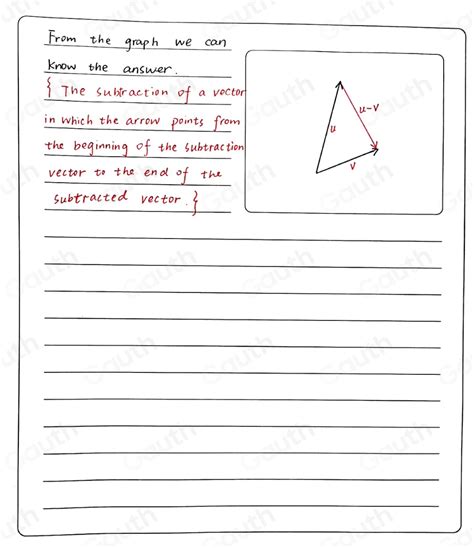 From the graph we can
know the answer.
{ The subtraction of a vector
in which the arrow points from
the beginning of the subtraction
vector to the end of the
subtracted vector. }
u
u-v
v
Gauth